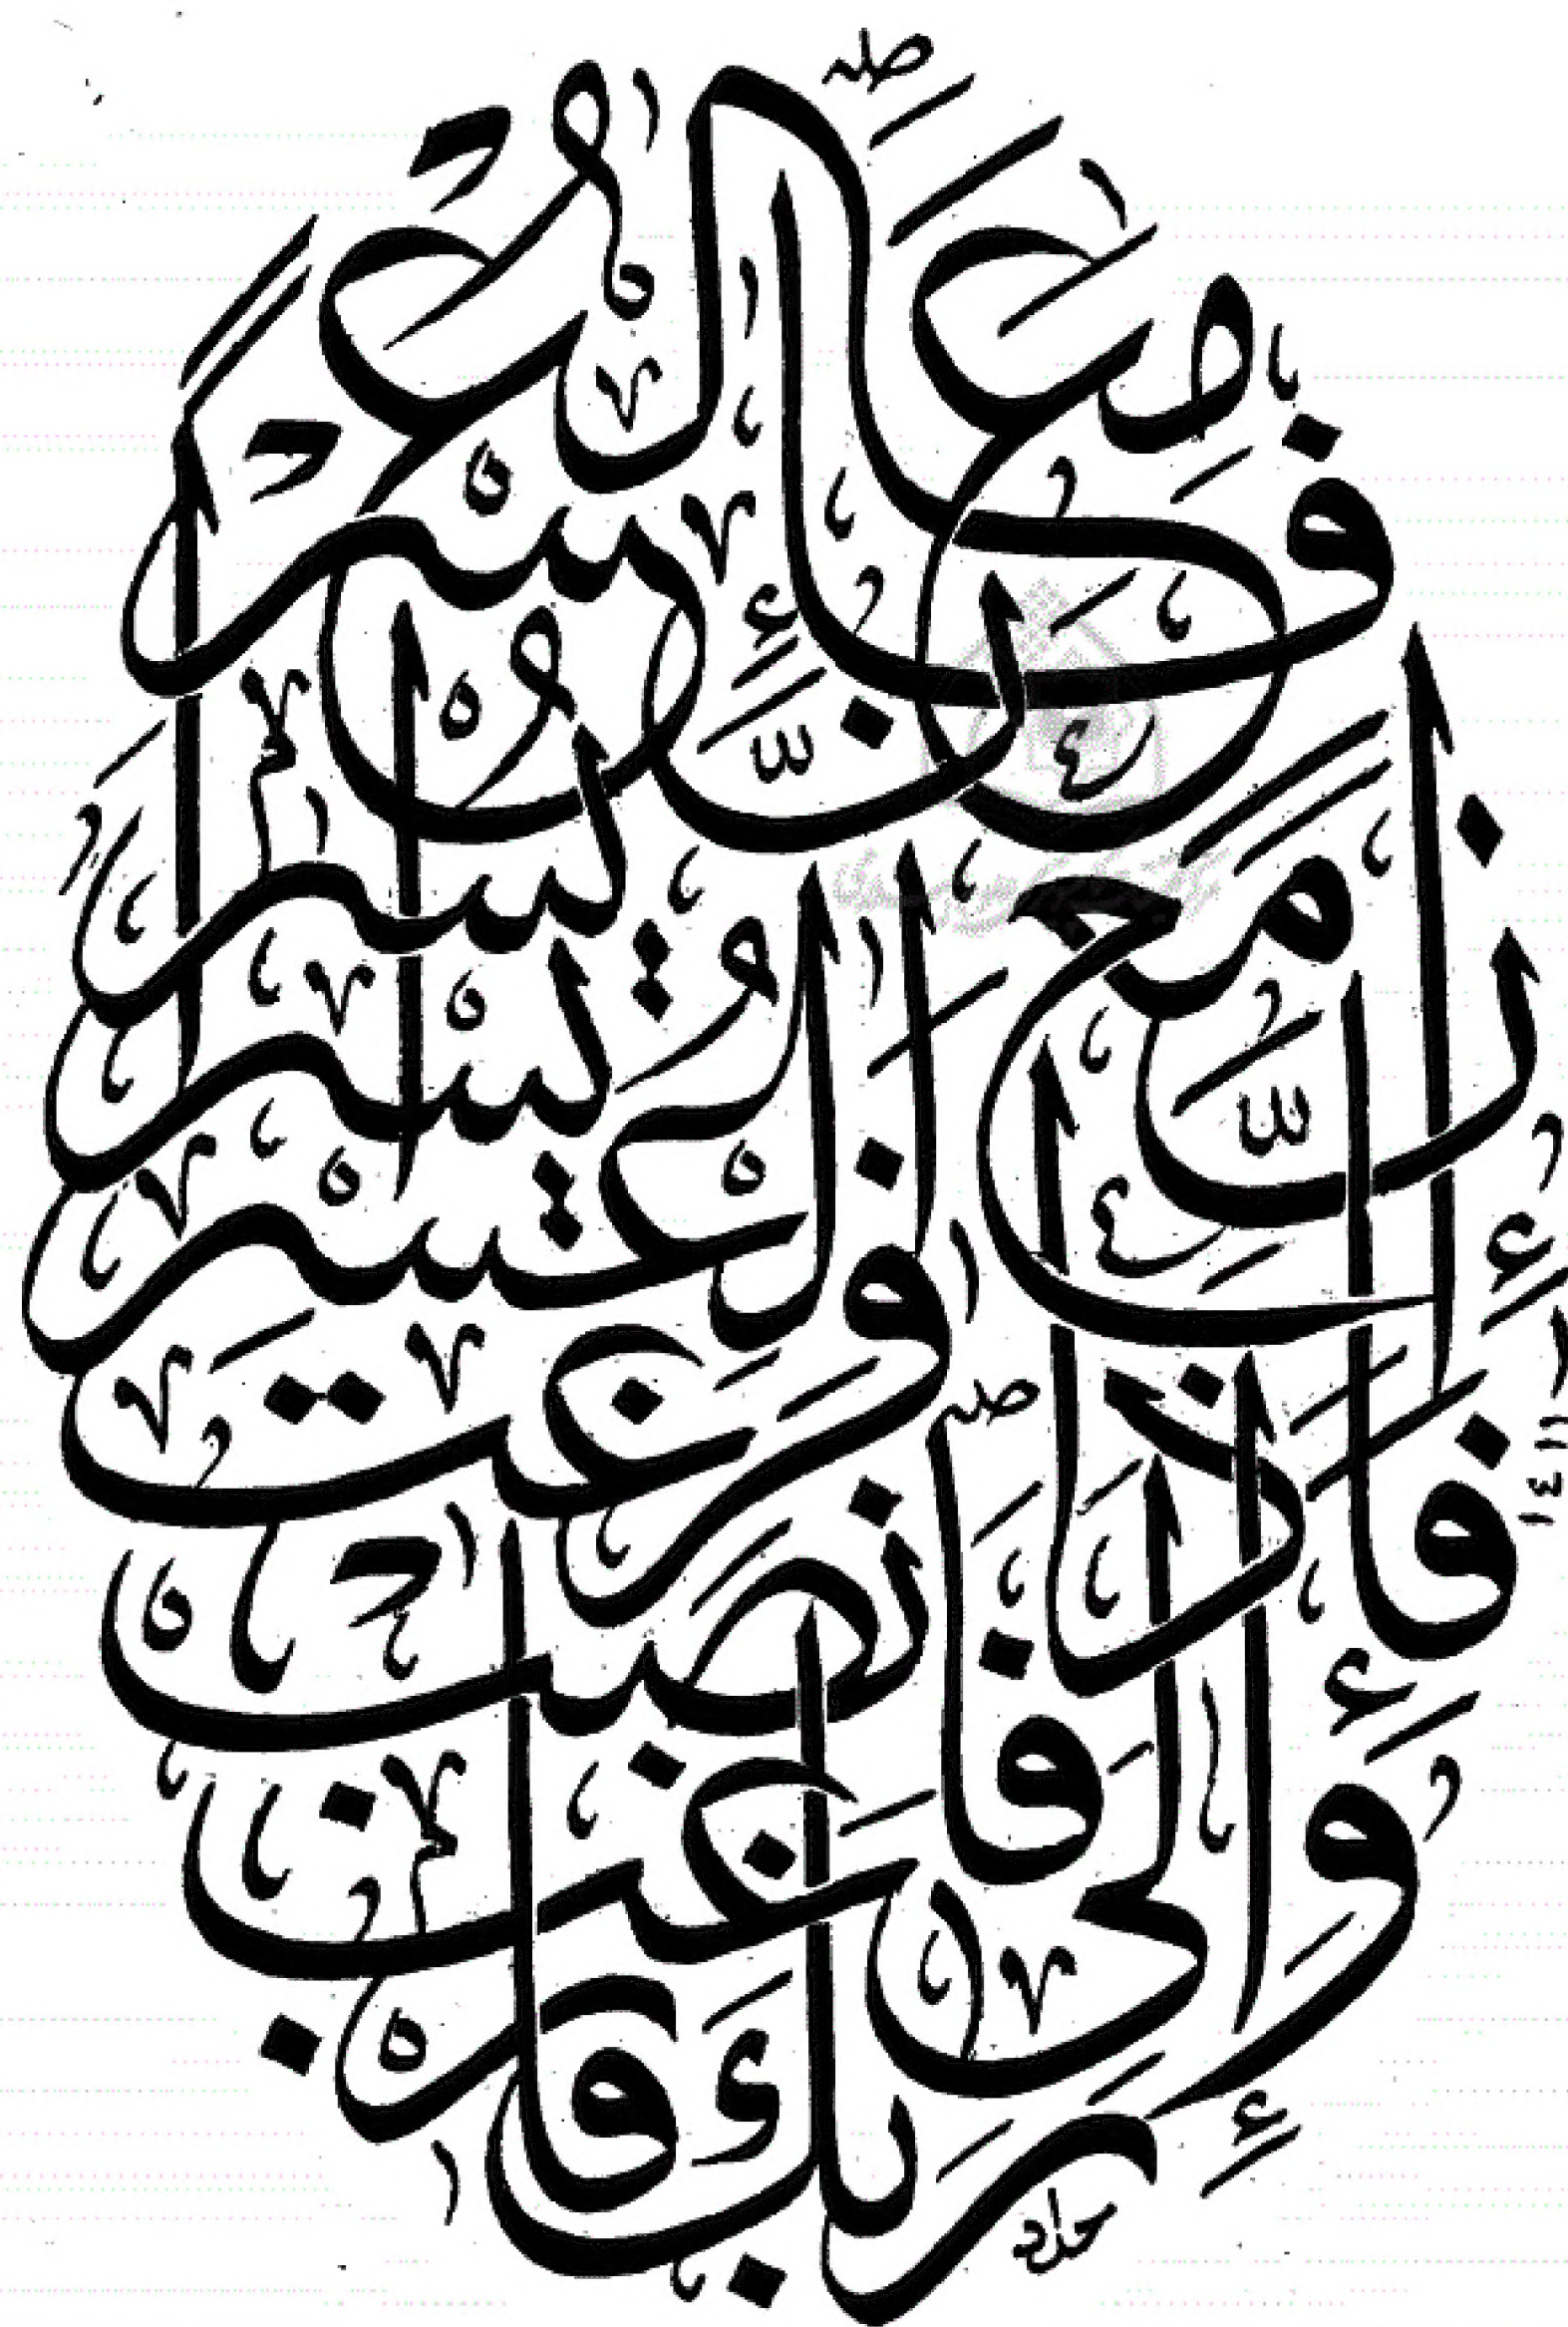 فَإِنَّ مَعَ الْعُسْرِ يُسْرًا
إِنَّ مَعَ الْعُسْرِ يُسْرًا
فَإِذَا فَرَغْتَ فَانْصَبْ
وَإِلَى رَبِّكَ فَارْغَبْ
حداد
١٤١١